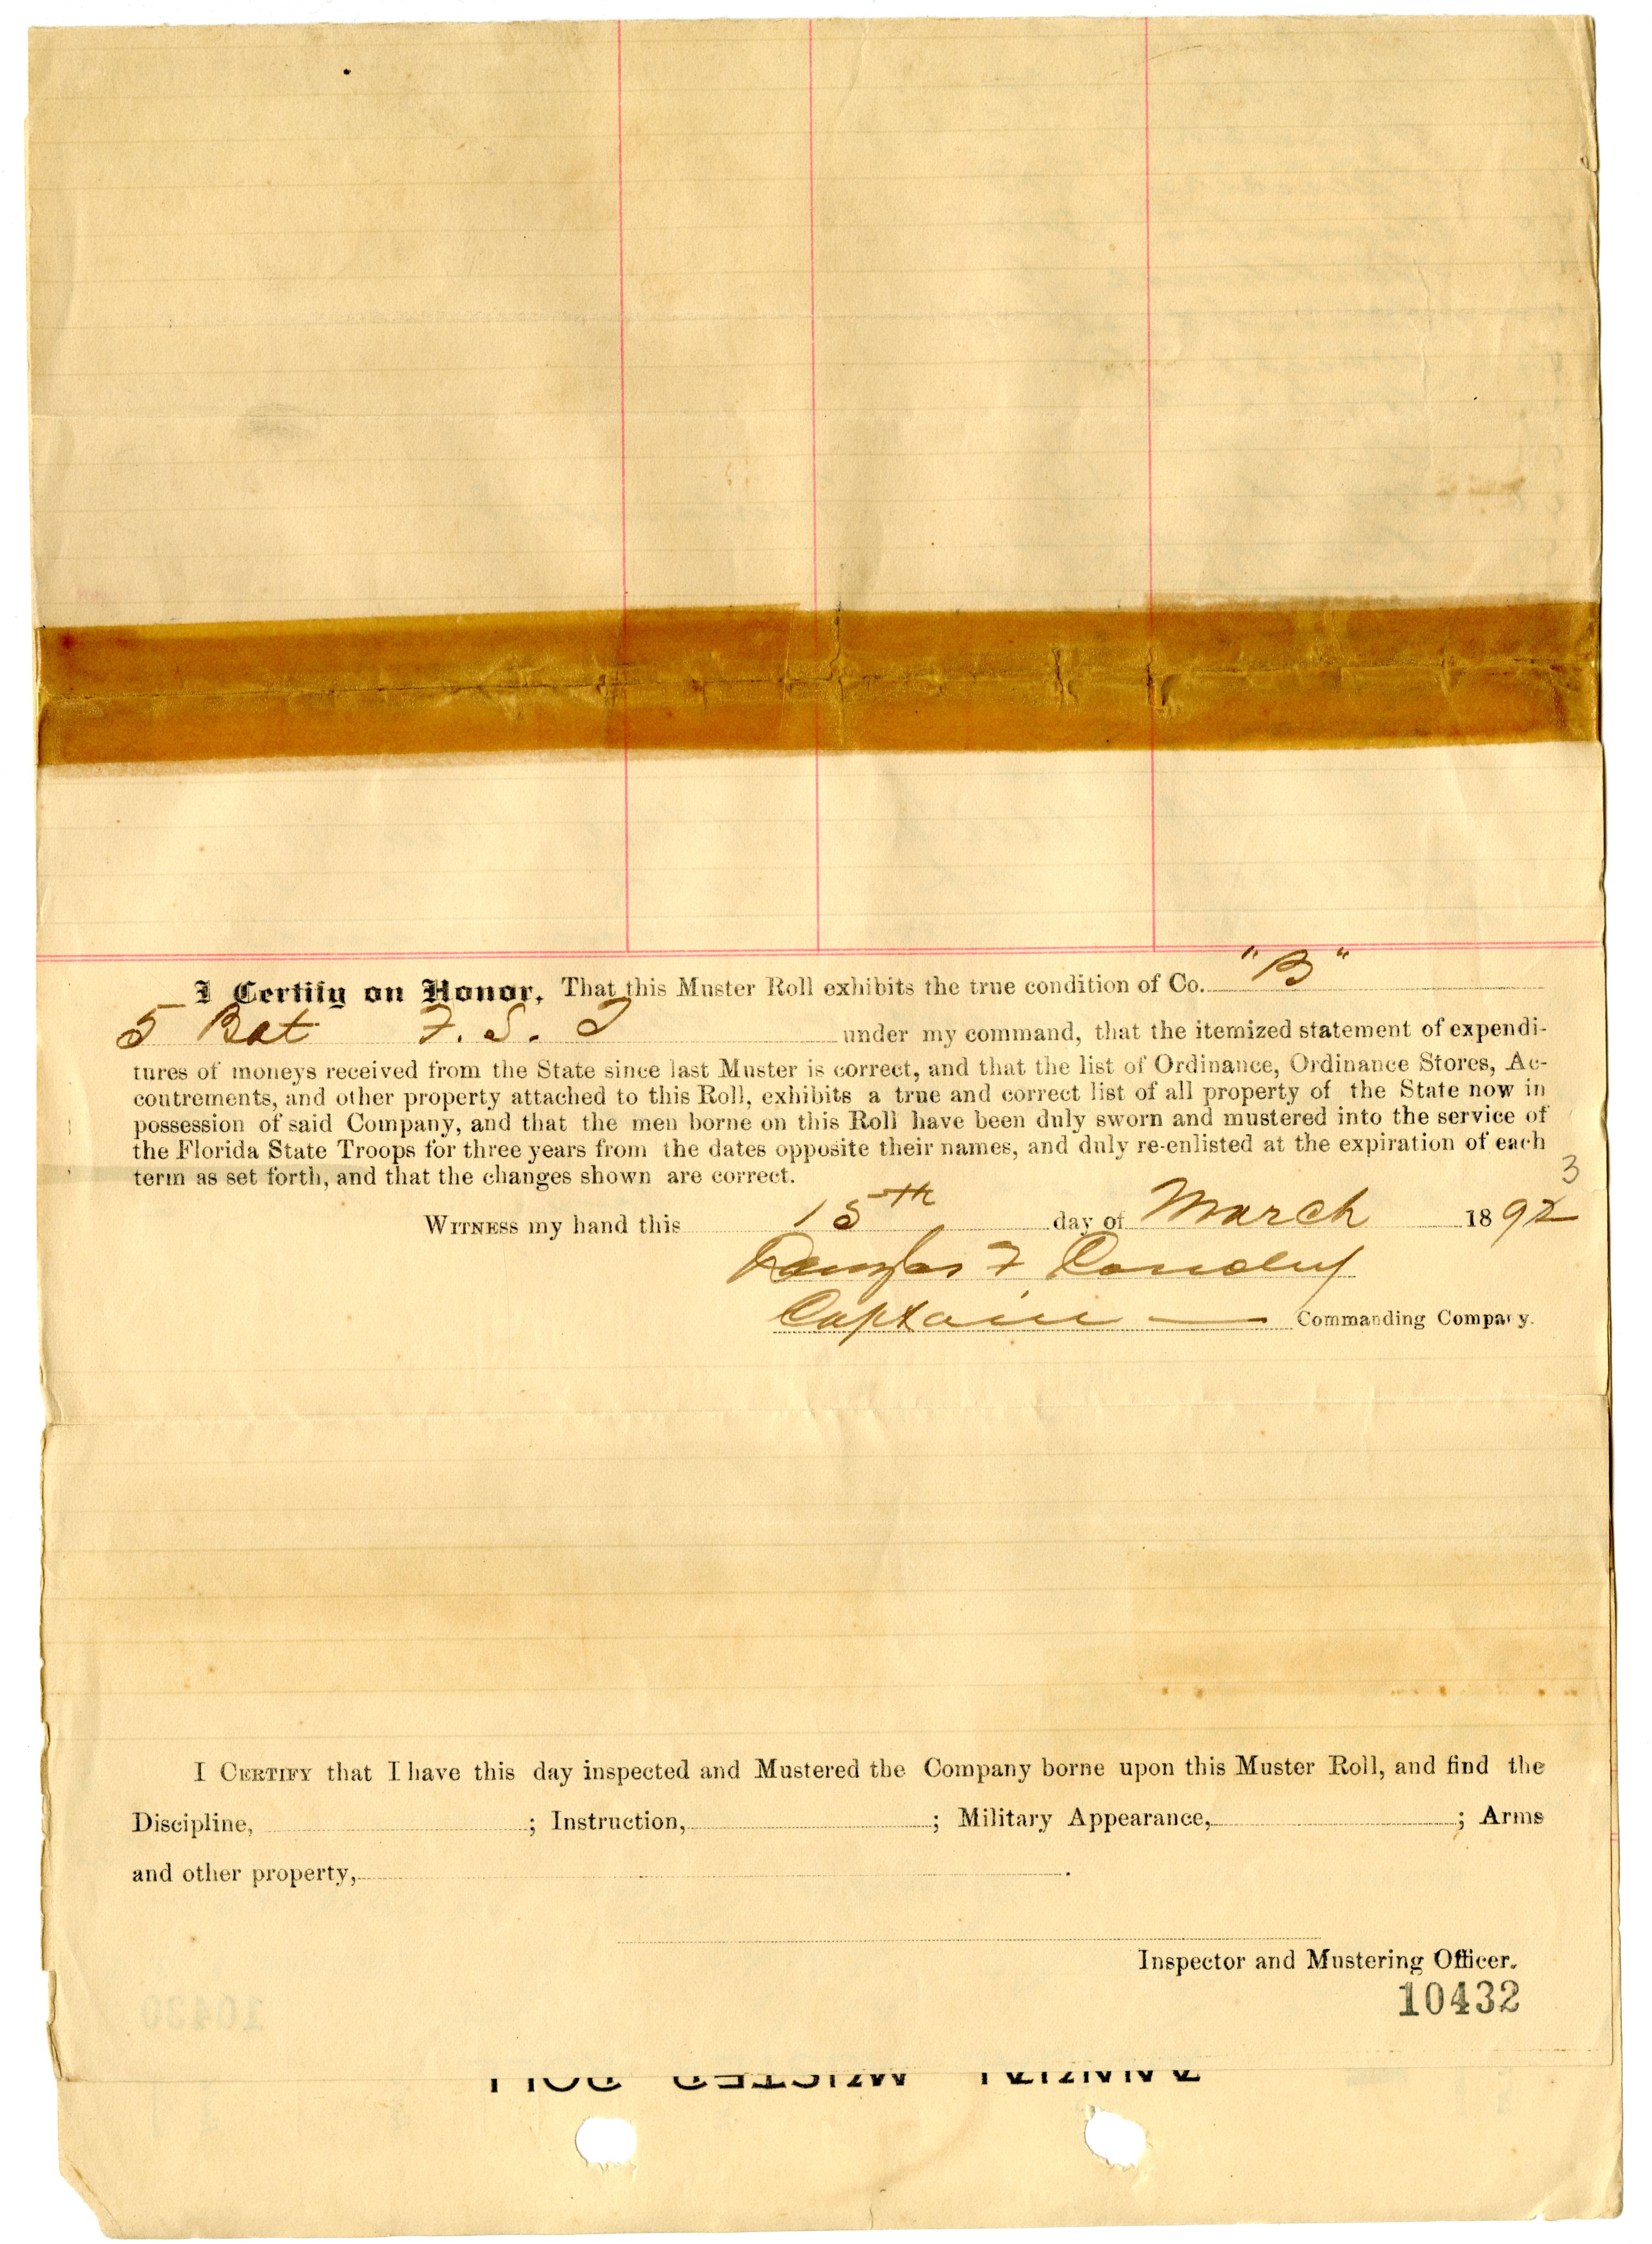 I Certify on Honor, That this Muster Roll exhibits the true condition of Co. "B"
5 Bat F. S. T under my command, that the itemized statement of expendi-
tures of moneys received from the State since last Muster is correct, and that the list of Ordinance, Ordinance Stores, Ac-
coutrements, and other property attached to this Roll, exhibits a true and correct list of all property of the State now in
possession of said Company, and that the men borne on this Roll have been duly sworn and mustered into the service of
the Florida State Troops for three years from the dates opposite their names, and duly re-enlisted at the expiration of each
term as set forth, and that the changes shown are correct.
3
WITNESS my hand this 15th day of March 1892
Douglas F
Captain — Commanding Company.
I CERTIFY that I have this day inspected and Mustered the Company borne upon this Muster Roll, and find the
Discipline, ; Instruction, ; Military Appearance, ; Arms
and other property, .
Inspector and Mustering Officer.
10432